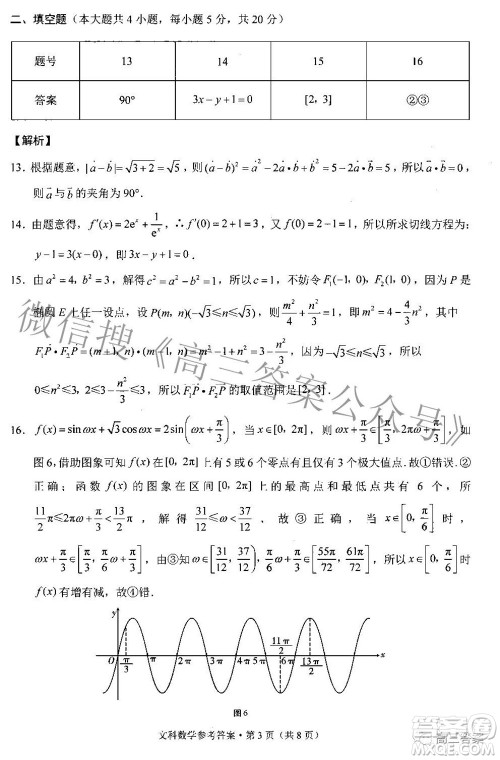 二、填空题（本大题共 4 小题，每小题 5 分，共 20 分）
题号 13 14 15 16
答案 90° 3x－y＋1＝0 [2，3] ②③
【解析】
13. 根据题意，|a－b|＝√(3＋2)＝√5，则(a－b)²＝a²－2a·b＋b²＝5－2a·b＝5，所以 a·b＝0，
则 a 与 b 的夹角为 90°．
14. 由题意得，f′(x)＝2eˣ＋1/eˣ，∴ f′(0)＝2＋1＝3，又 f(0)＝2－1＝1，所以所求切线方程为：
y－1＝3(x－0)，即 3x－y＋1＝0．
15. 由 a²＝4，b²＝3，解得 c²＝a²－b²＝1，所以 c＝1，不妨令 F₁(－1，0)，F₂(1，0)，因为 P 是
椭圆 E 上任一设点，设 P(m，n)(－√3≤n≤√3)，则 m²/4＋n²/3＝1，即 m²＝4－4/3 n²，其中
F₁P·F₂P＝(m＋1，n)·(m－1，n)＝m²－1＋n²＝3－n²/3，因为－√3≤n≤√3，所以
0≤n²≤3，2≤3－n²/3≤3，所以 F₁P·F₂P 的取值范围是[2，3]．
16. f(x)＝sinωx＋√3cosωx＝2sin(ωx＋π/3)，当 x∈[0，2π]，ωx＋π/3∈[π/3，2πω＋π/3]，如
图 6，借助图象可知 f(x)在[0，2π]上有 5 或 6 个零点有且仅有 3 个极大值点．故①错误．②
正确；函数 f(x)的图象在区间[0，2π]上的最高点和最低点共有 6 个，所以
11/2 π≤2πω＋π/3＜13/2 π，解得 31/12≤ω＜37/12，故③正确，当 x∈[0，π/6]时，
ωx＋π/3∈[π/3，ωπ/6＋π/3]，由③知ω∈[31/12，37/12)，ωπ/6＋π/3∈[55π/72，61π/72)，所以 x∈[0，π/6]时
f(x)有增有减，故④错．
y
O π/3 π 2π 3π 4π 5π 11π/2 6π 13π/2 x
图 6
文科数学参考答案·第 3 页（共 8 页）
微信搜《高三答案公众号》
高三答案